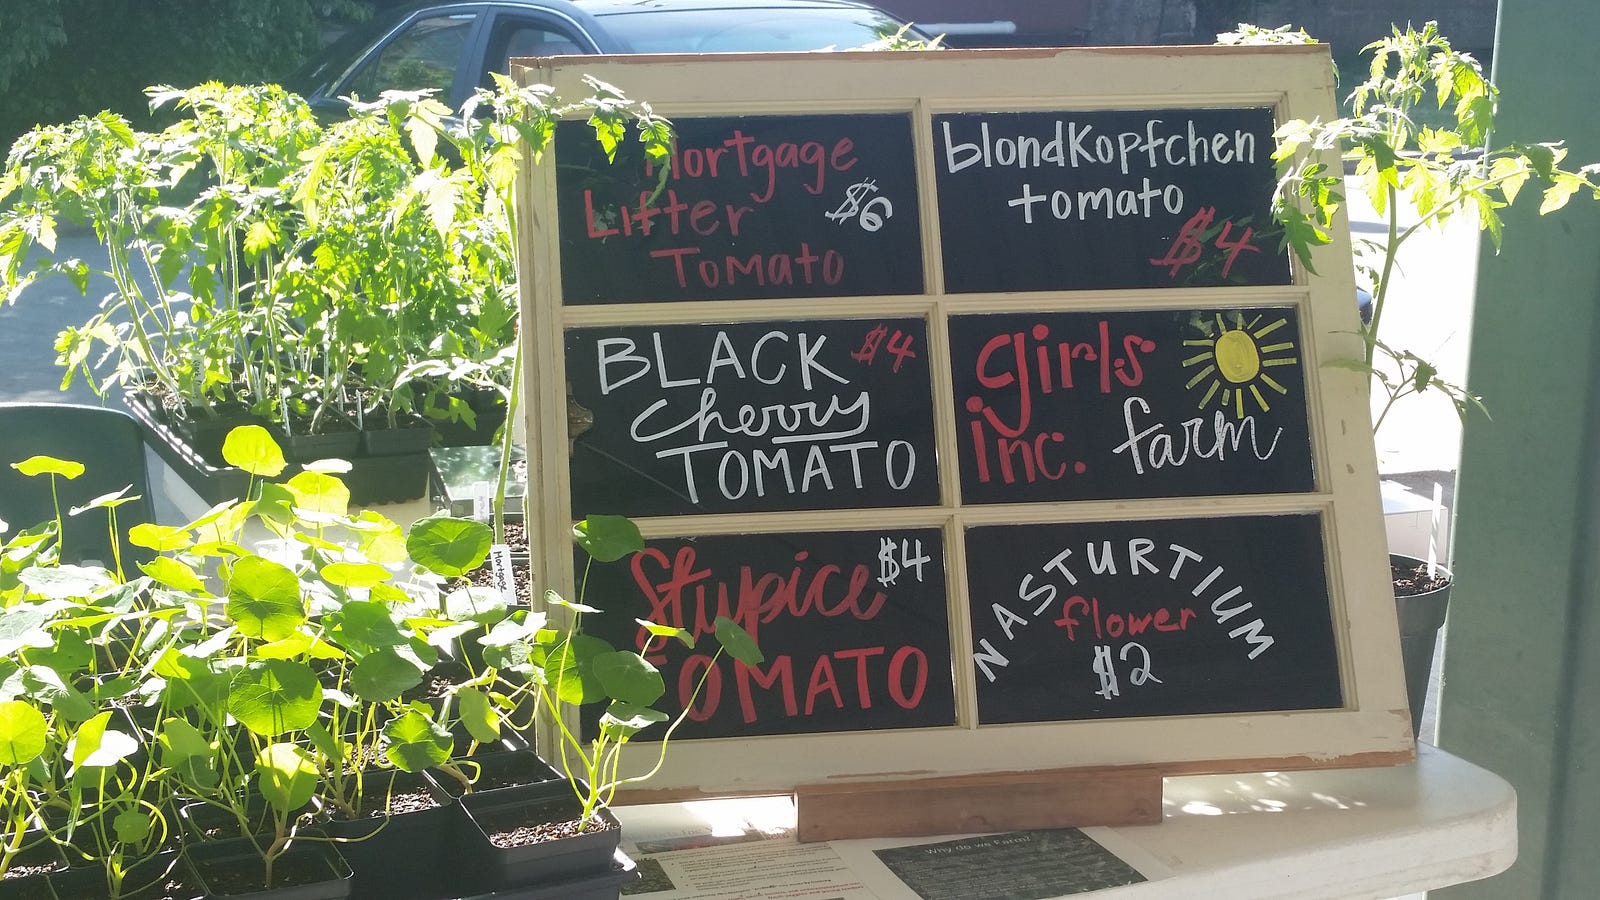 Mortgage
Lifter
$6
Tomato
blondkopfchen
tomato
$4
BLACK
$4
cherry
TOMATO
girls
inc.
farm
Stupice
$4
TOMATO
NASTURTIUM
flower
$2
Mortgage
Why do we Farm?